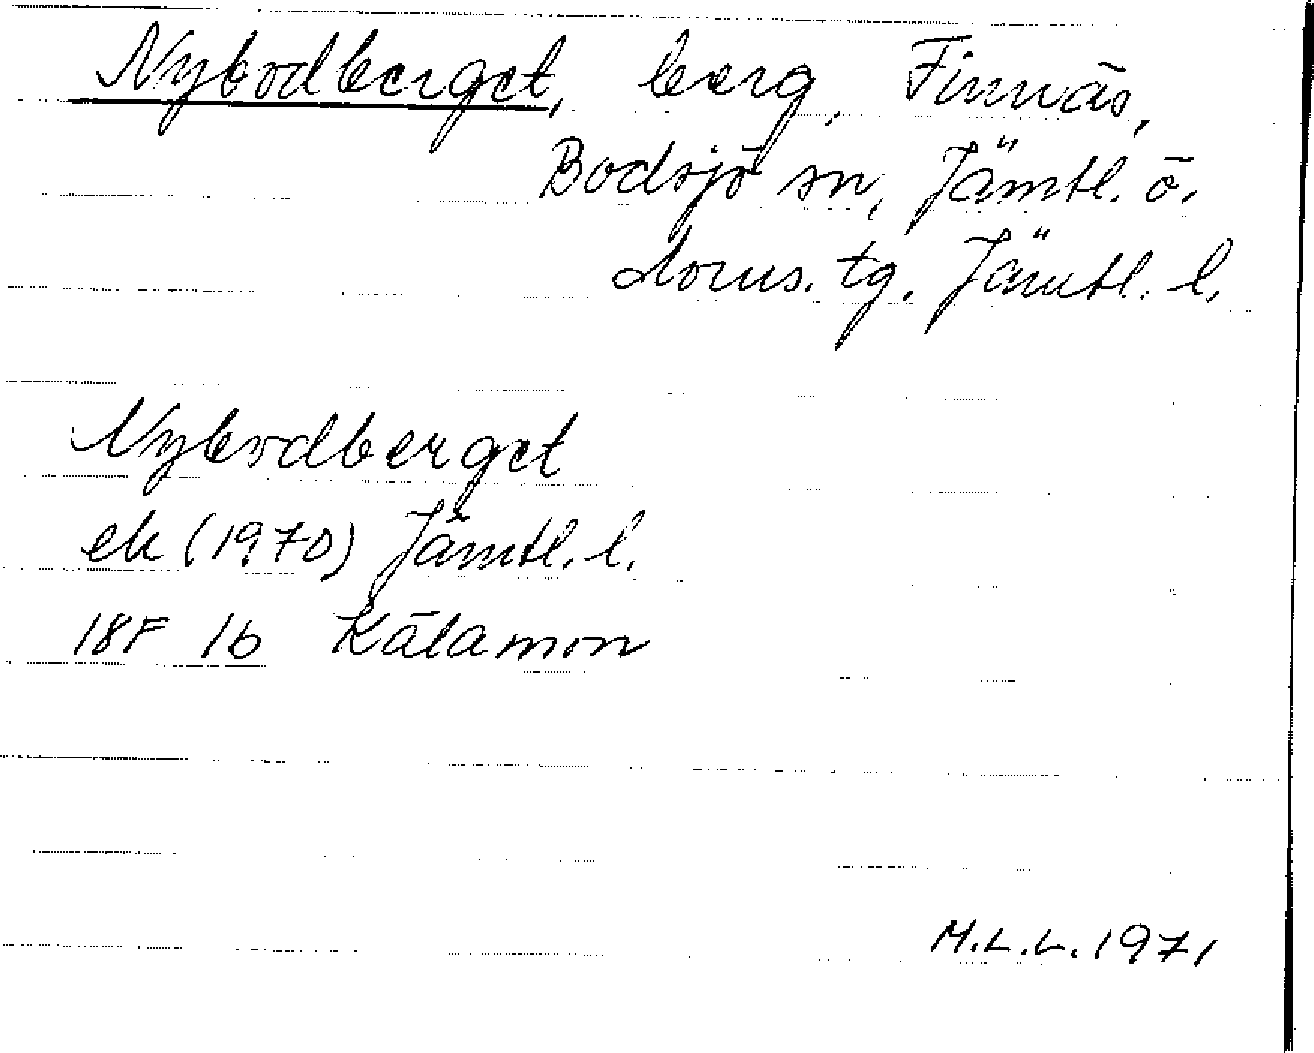 Nybodberget, berg, Finnäs,
Bodsjö sn, Jämtl. ö.
doms. tg. Jämtl. l.
Nybodberget
ek (1970) Jämtl. l.
18F 1b Kälamon
M.L.L. 1971